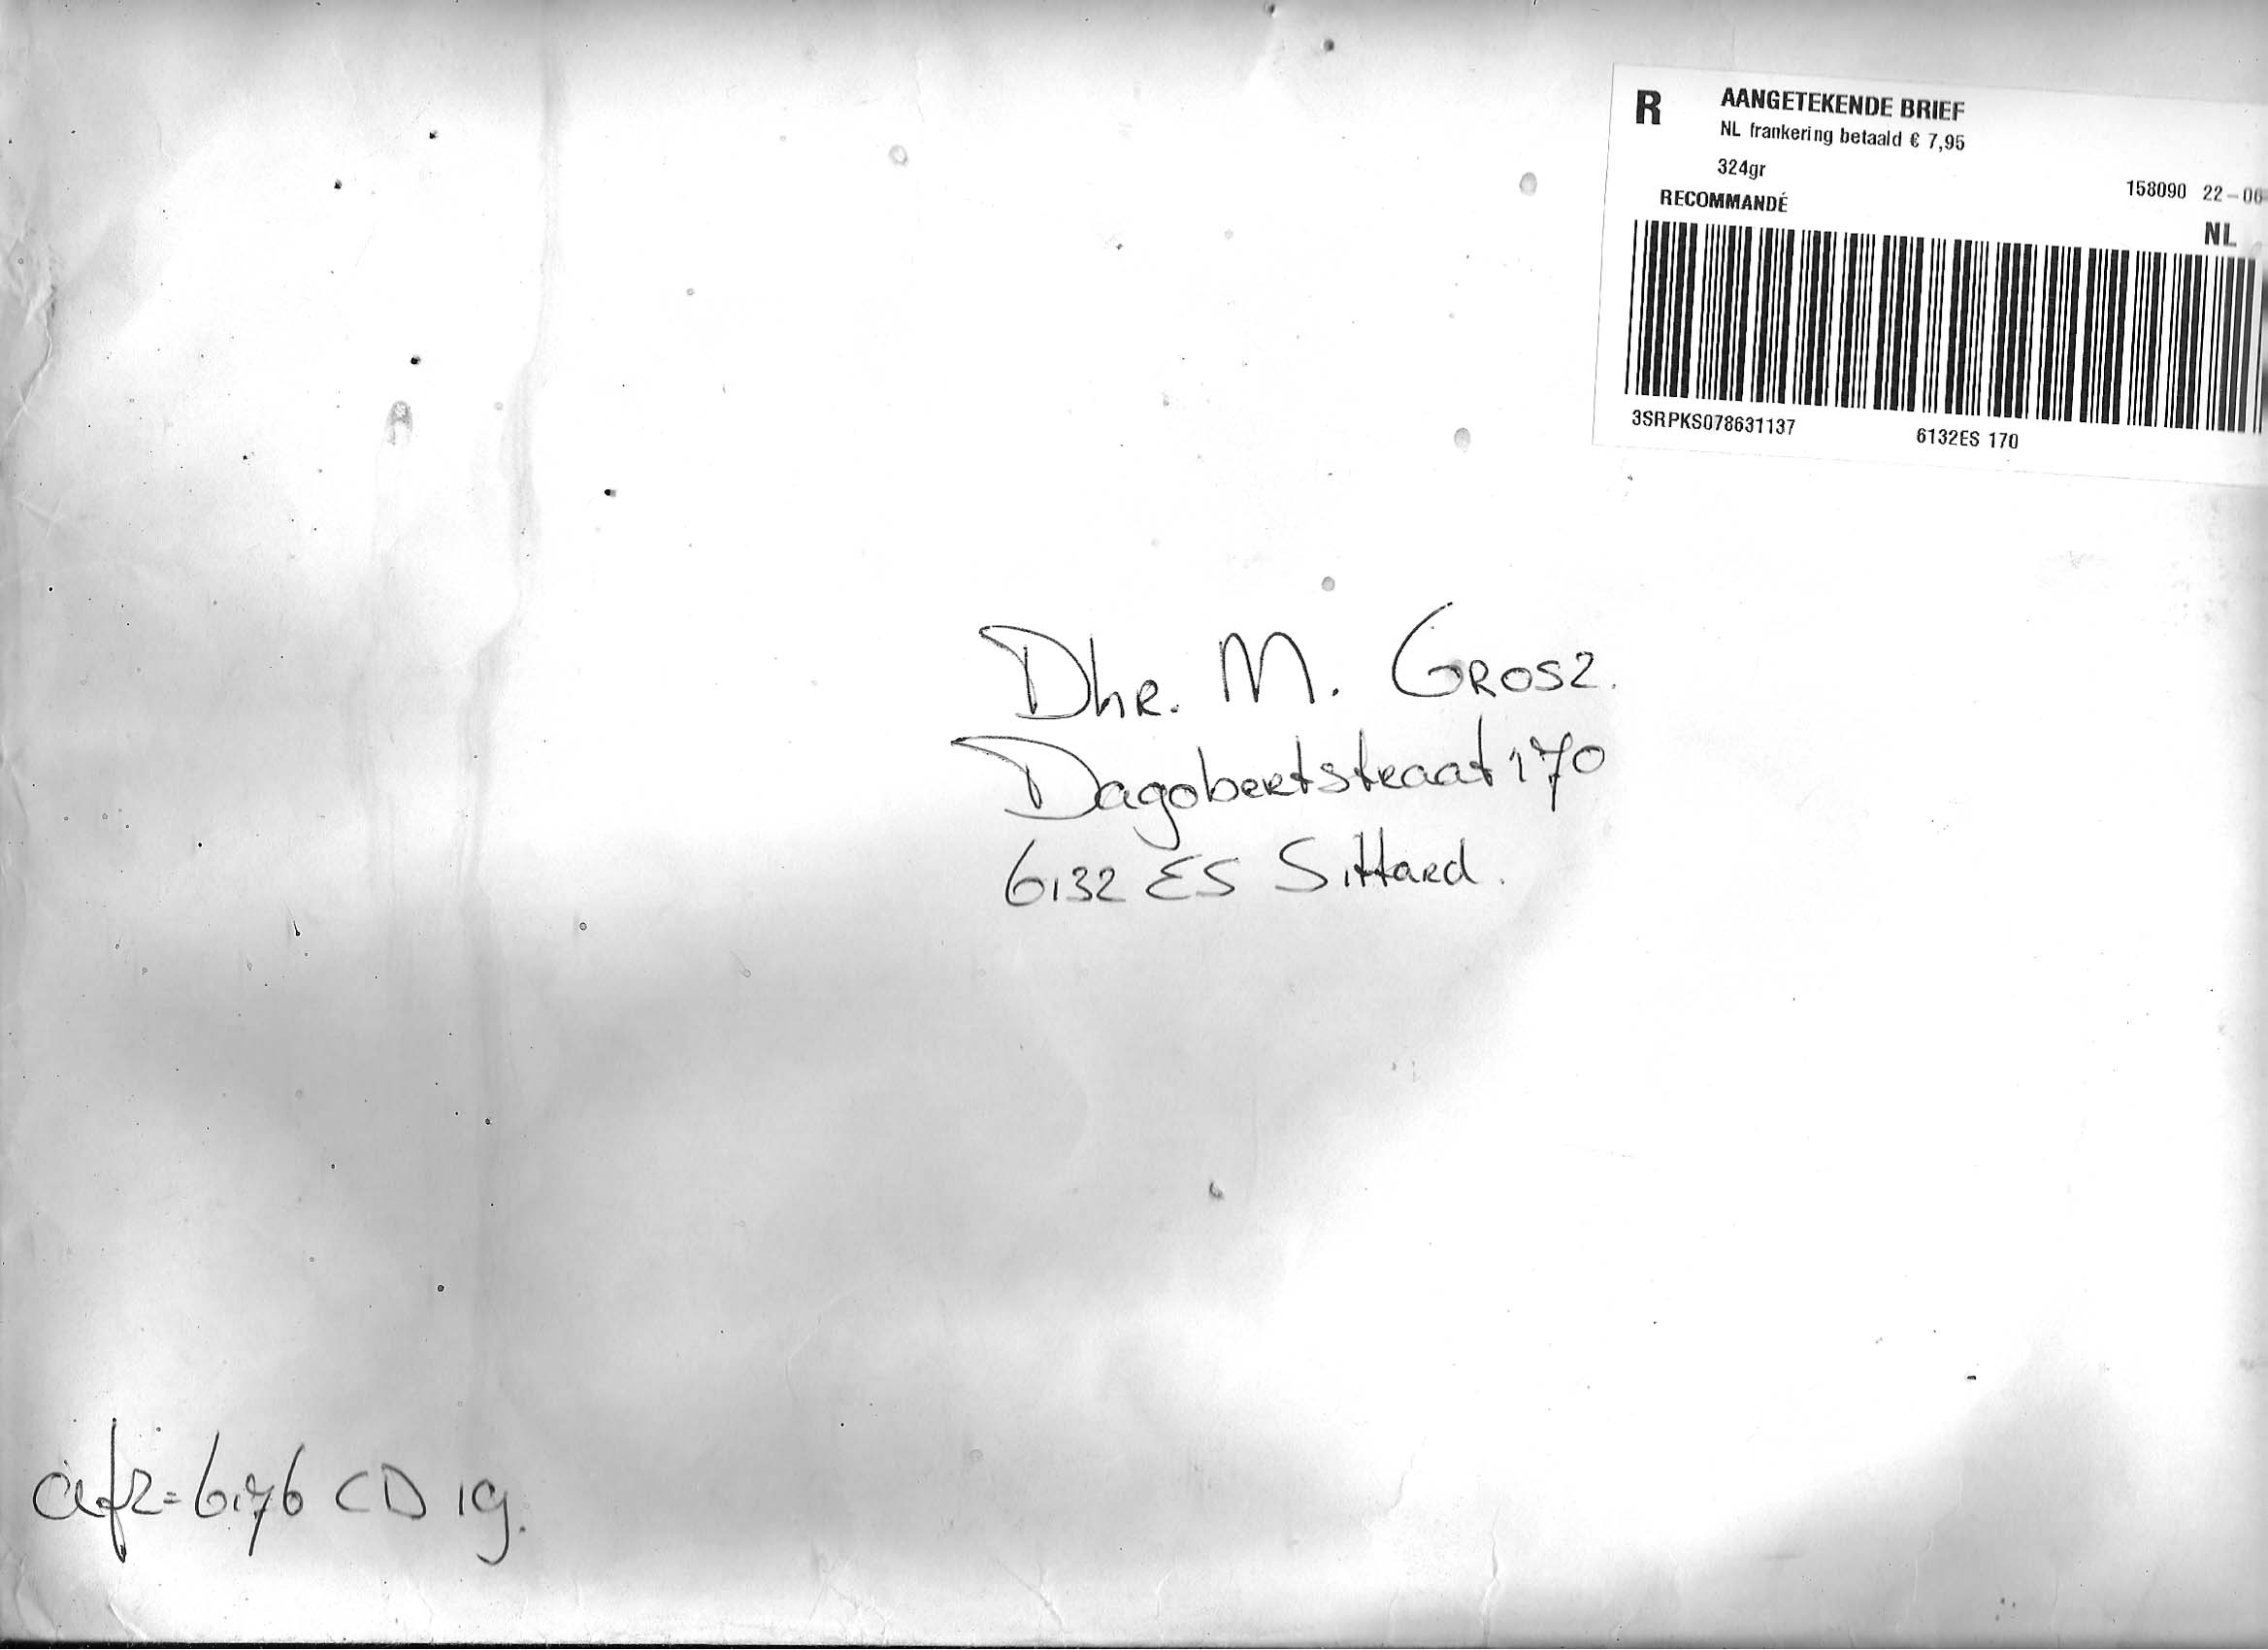 R AANGETEKENDE BRIEF
NL frankering betaald € 7,95
324gr
158090 22-06
RECOMMANDÉ
NL
3SRPKS078631137 6132ES 170
Dhr. M. Grosz.
Dagobertstraat 170
6132 ES Sittard.
afz= 6176 CD 19.